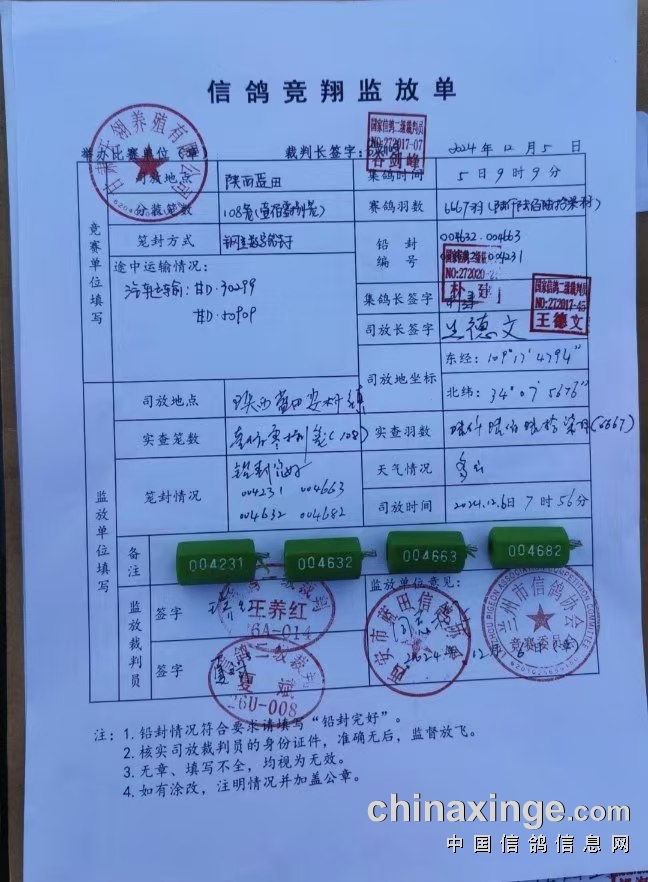 信鸽竞翔监放单
举办比赛单位（章） 裁判长签字： 2024年12月5日
国家信鸽二级裁判员
NO:272017-07
谷剑峰
竞赛单位填写
司放地点 陕西蓝田 集鸽时间 5日9时9分
分装笼数 108笼 赛鸽羽数 6667羽
笼封方式 铅封 004632 004663
编号 004231
途中运输情况：
汽车运输：甘D·30299
甘D·50909
集鸽长签字
国家信鸽二级裁判员
NO:272017-45
王德文
司放长签字 王德文
司放地坐标 东经：109°17'4794"
北纬：34°07'5676"
监放单位填写
司放地点 陕西蓝田安村镇
实查笼数 (108) 实查羽数 (6667)
笼封情况 铅封完好
004231 004663
004632 004682
天气情况 多云
司放时间 2024.12.6日7时56分
备注
004231 004632 004663 004682
监放裁判员
签字 汪养红
6A-014
签字
26U-008
监放单位意见：
西安市蓝田信鸽协会
兰州市信鸽协会
竞赛委员会
2024年12月6日
注：1. 铅封情况符合要求请填写“铅封完好”。
2. 核实司放裁判员的身份证件，准确无后，监督放飞。
3. 无章、填写不全，均视为无效。
4. 如有涂改，注明情况并加盖公章。
chinaxinge.com
中国信鸽信息网